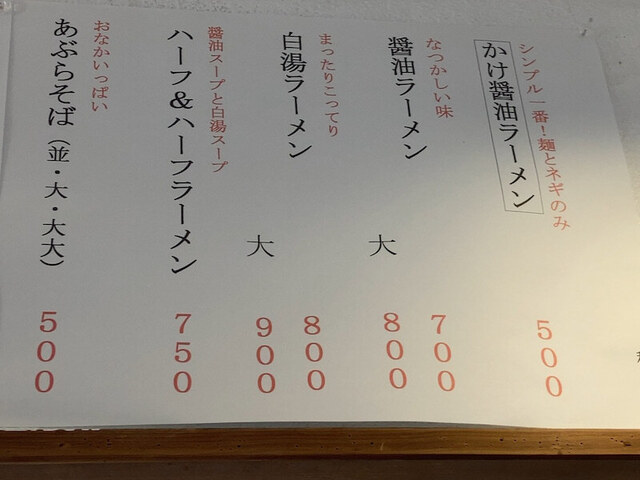 シンプル一番！麺とネギのみ
かけ醤油ラーメン
500
なつかしい味
醤油ラーメン
700
大 800
まったりこってり
白湯ラーメン
800
大 900
醤油スープと白湯スープ
ハーフ&ハーフラーメン
750
おなかいっぱい
あぶらそば（並・大・大大）
500